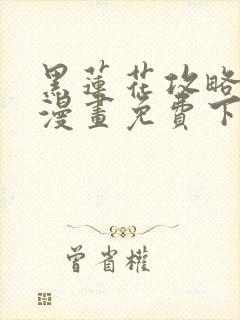 黑蓮花攻略
漫畫免費下
曾省權